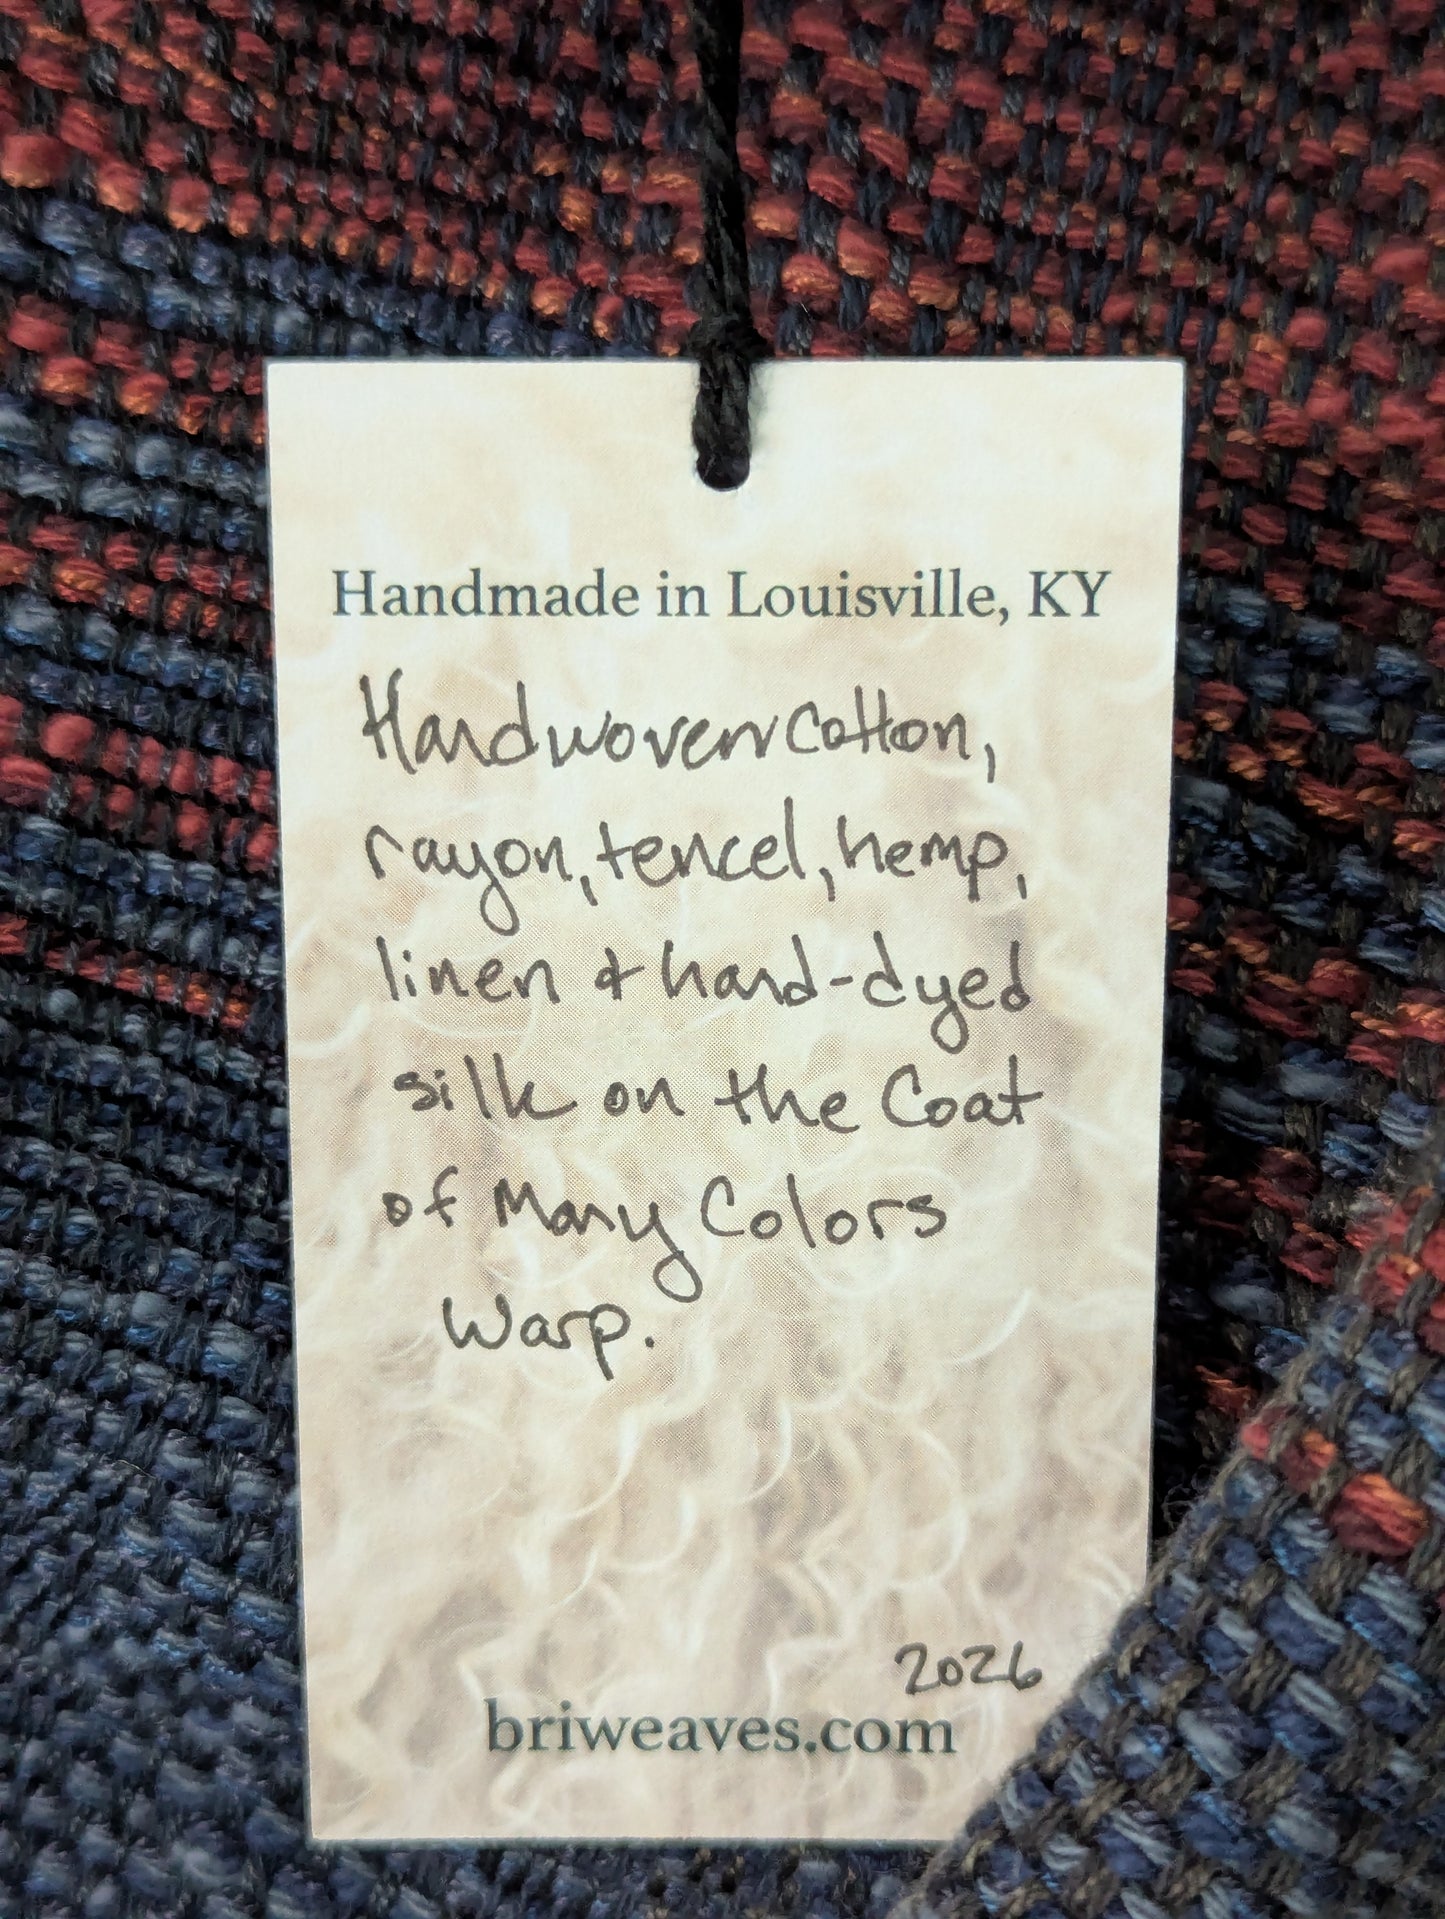 Handmade in Louisville, KY
Handwoven cotton,
rayon, tencel, hemp,
linen & hand-dyed
silk on the Coat
of Many Colors
Warp.
2026
briweaves.com